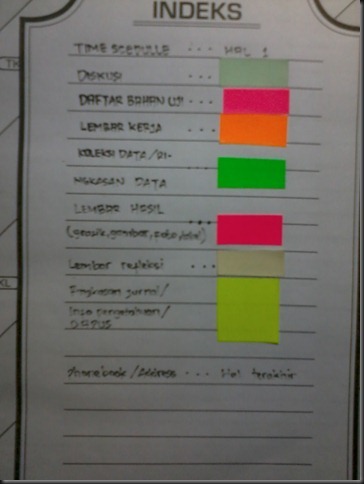 INDEKS
TIME SCEDULLE ... HAL 1
DISKUSI
DAFTAR BAHAN UJI ...
LEMBAR KERJA ...
KOLEKSI DATA/RI- ...
NGKASAN DATA
LEMBAR HASIL ...
(grafik, gambar, foto, tabel)
Lembar refleksi ...
Ringkasan jurnal/
Info pengetahuan/
DAPUS
Phonebook/Address ... Hal terakhir
XL